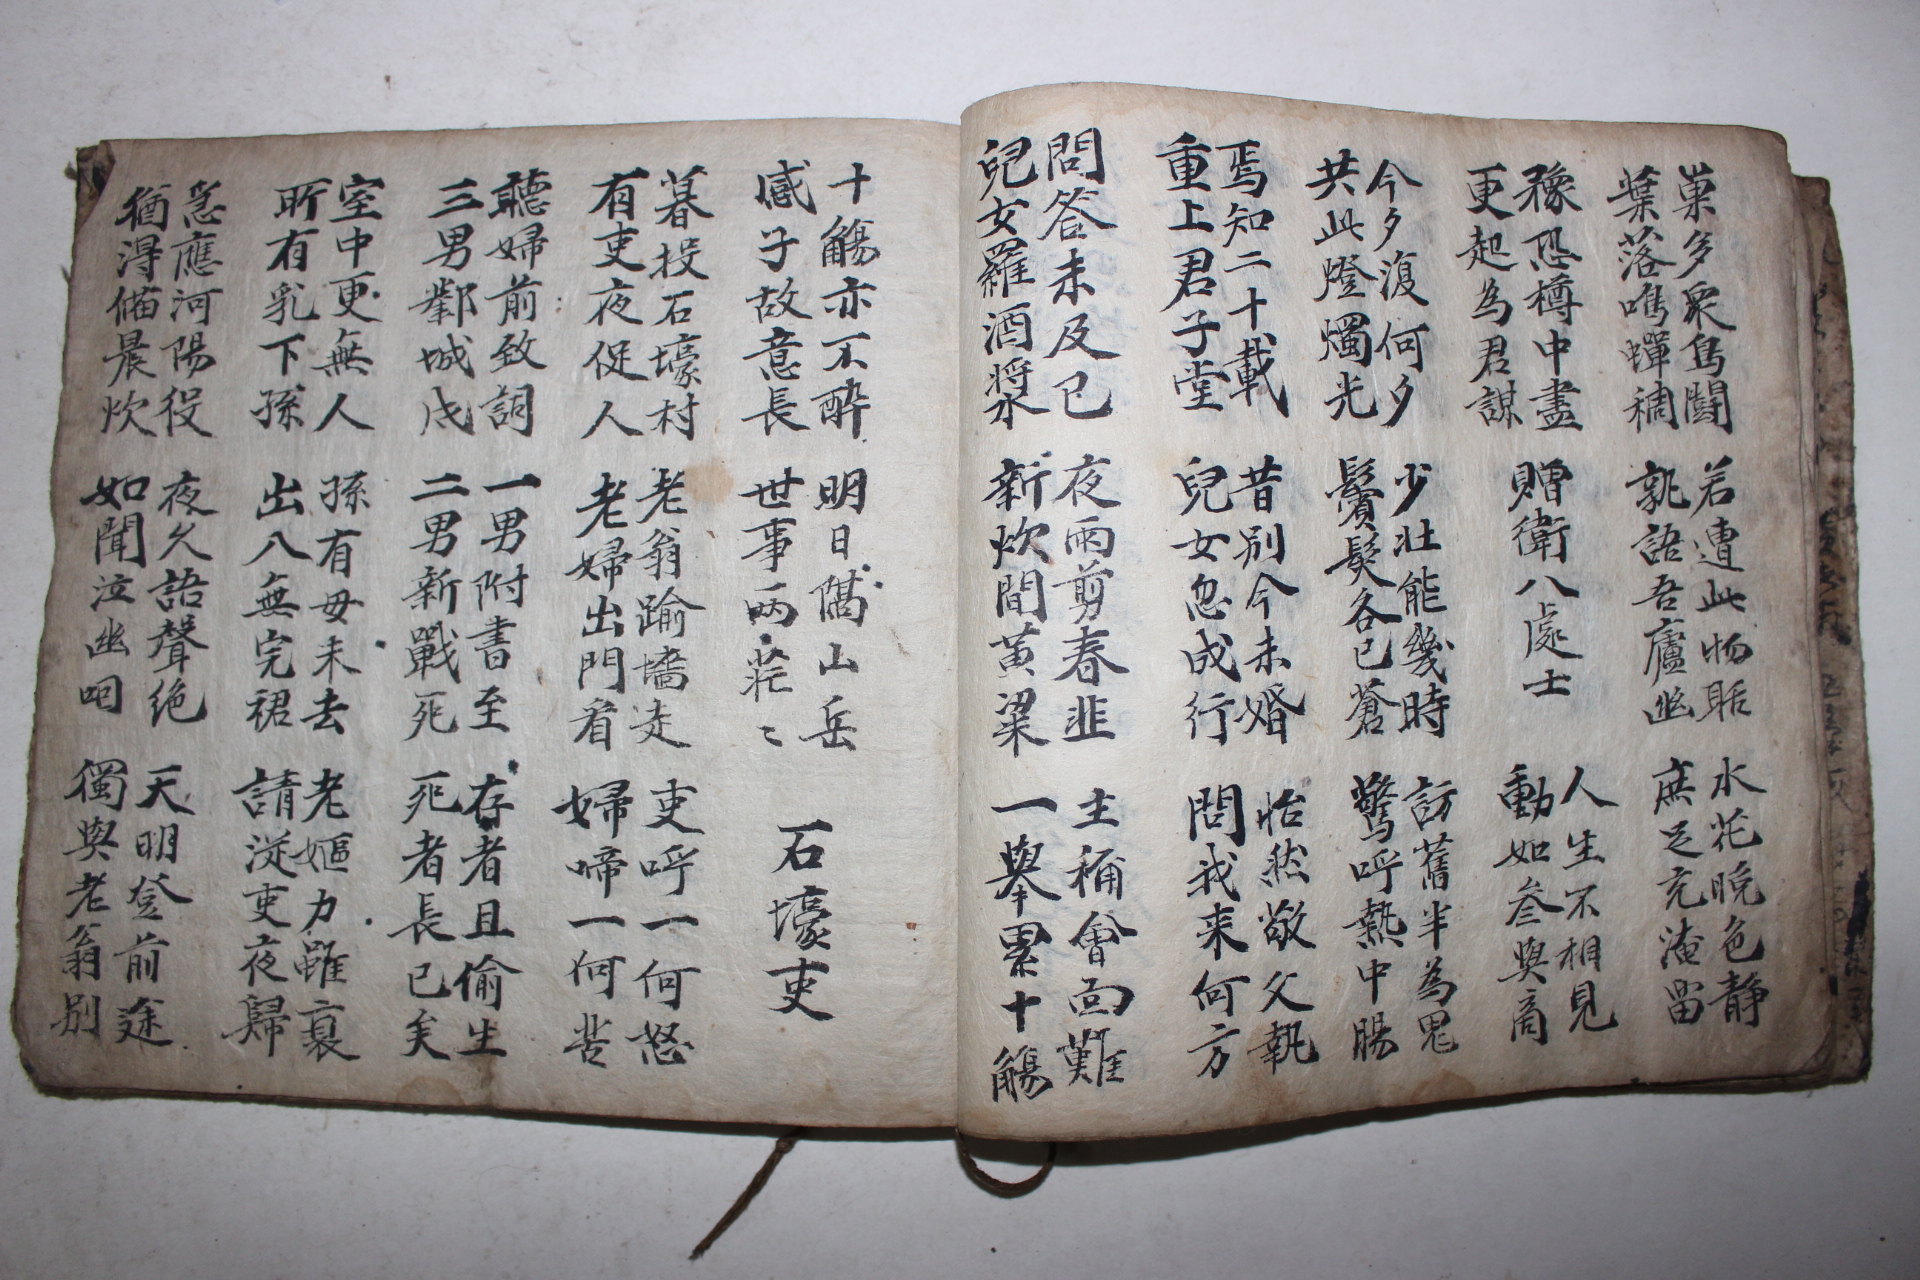 巢多眾鳥鬪
葉落鳴蟬稠
若遭此物聒
孰語吾廬幽
水花晚色静
庶足充淹留
豫恐樽中盡
更起為君謀
贈衛八處士
人生不相見
動如參與商
今夕復何夕
共此燈燭光
少壯能幾時
鬢髮各已蒼
訪舊半為鬼
驚呼熱中腸
焉知二十載
重上君子堂
昔別今未婚
兒女忽成行
怡然敬父執
問我来何方
問答未及已
兒女羅酒漿
夜雨剪春韭
新炊間黃粱
主稱會面難
一舉累十觴
十觴亦不醉
感子故意長
明日隔山岳
世事兩茫〻
石壕吏
暮投石壕村
有吏夜促人
老翁踰墻走
老婦出門看
吏呼一何怒
婦啼一何苦
聽婦前致詞
三男鄴城戍
一男附書至
二男新戰死
存者且偷生
死者長已矣
室中更無人
所有乳下孫
孫有母未去
出入無完裙
老嫗力雖衰
請從吏夜歸
急應河陽役
猶得備晨炊
夜久語聲絶
如聞泣幽咽
天明登前途
獨與老翁別